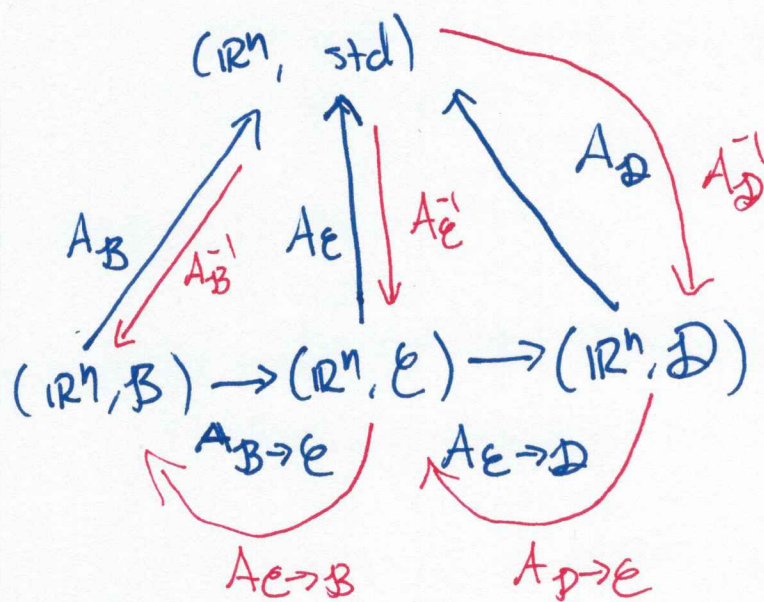 (ℝⁿ, std)
A_B A_B⁻¹ A_ℰ A_ℰ⁻¹ A_D A_D⁻¹
(ℝⁿ, B) → (ℝⁿ, ℰ) → (ℝⁿ, D)
A_B→ℰ A_ℰ→D
A_ℰ→B A_D→ℰ